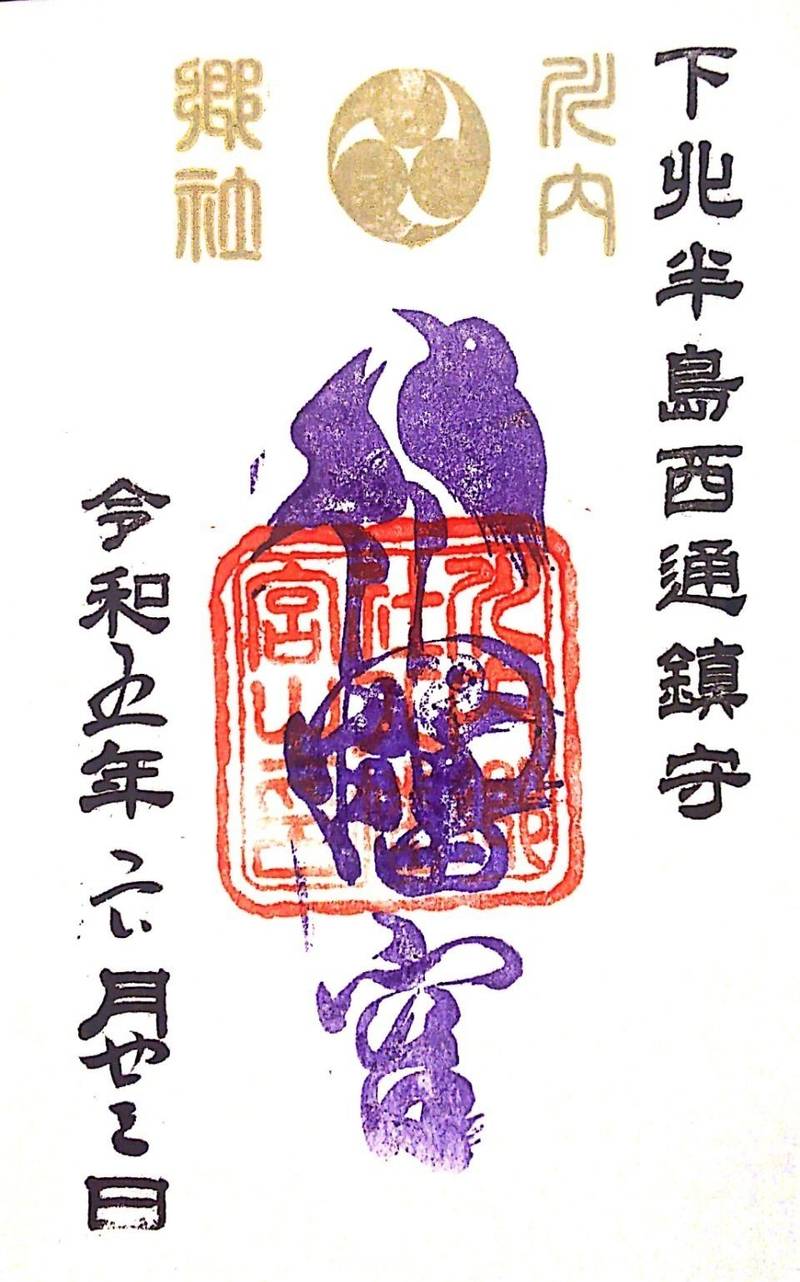 下北半島西通鎮守
川内
郷社
八幡宮
令和五年六月廿三日